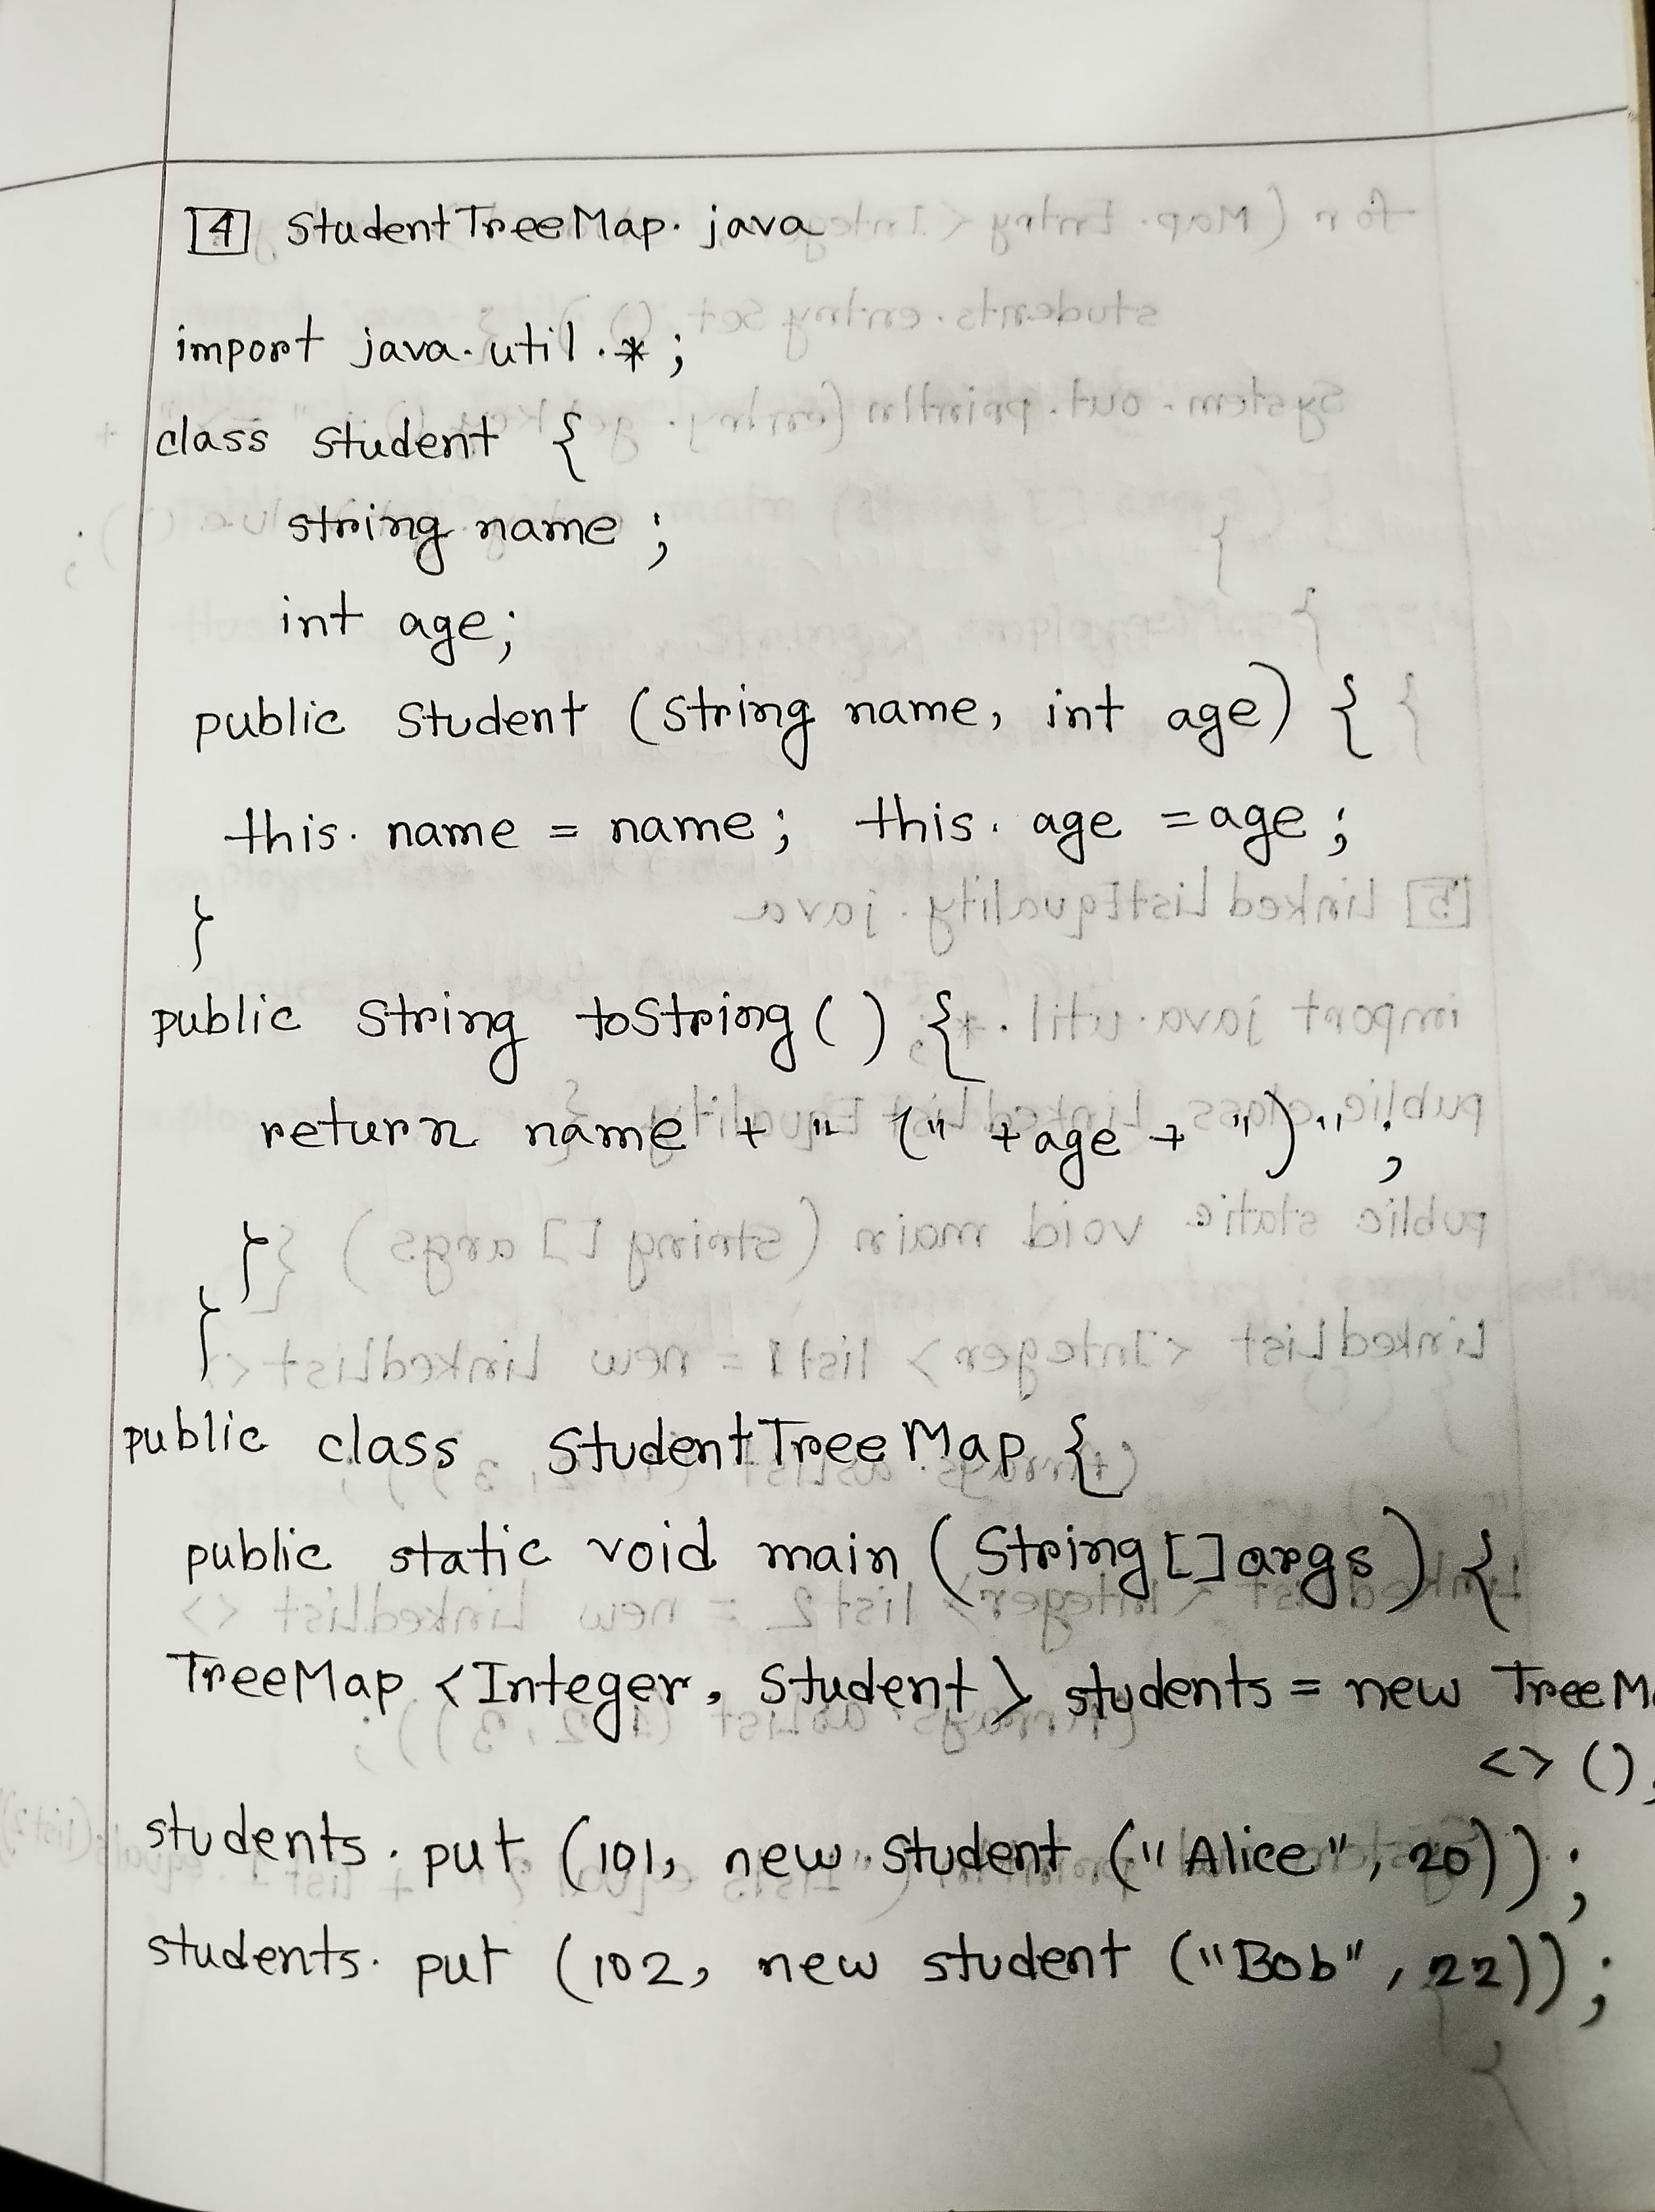 4 StudentTreeMap.java
import java.util.*;
class Student {
string name;
int age;
public Student (String name, int age) {
this.name = name; this.age = age;
}
public String toString() {
return name + " (" + age + ")";
}
}
public class StudentTreeMap {
public static void main (String[] args) {
TreeMap <Integer, Student> students = new TreeMa
<> ();
students.put (101, new Student ("Alice", 20));
students.put (102, new student ("Bob", 22));